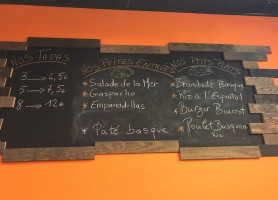 Nos Tapas
3 → 4,5€
5 → 7,5€
8 → 12€
Nos Petites Entrées
Salade de la Mer
Gaspacho
Empanadillas
Pâté basque
Nos Petits Plats
Brandade Basque
Riz à l'Español
Burger Biarrot
Poulet Basque
Riz